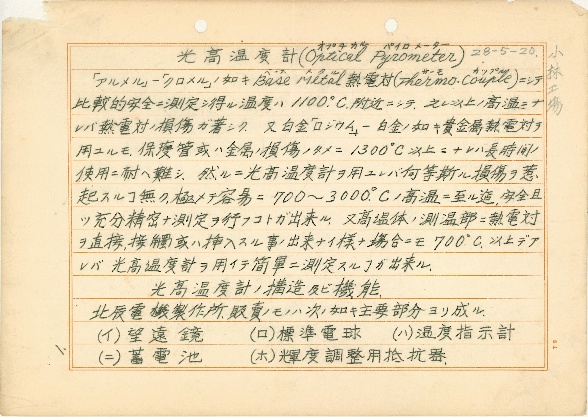 光高温度計(Optical Pyrometer) 28-5-20.
オプチカル パイロメーター
小林工場
「アルメル」-「クロメル」ノ如キ Base Metal 熱電対(Thermo-Couple)ニシテ
ベース メタル サーモ カップル
比較的安全ニ測定シ得ル温度ハ 1100°C.附近ニシテ 之レ以上ノ高温ニナ
レバ熱電対ノ損傷ガ著シク. 又白金「ロジウム」-白金ノ如キ貴金属熱電対ヲ
用ユルモ. 保護管或ハ金属ノ損傷ノタメニ 1300°C以上ニナレバ長時間ノ
使用ニ耐ヘ難シ. 然ルニ光高温度計ヲ用ユレバ何等斯ル損傷ヲ惹
起スルヿ無ク.極メテ容易ニ 700〜3000°C.ノ高温ニ至ル迄.安全且
ツ充分精密ナ測定ヲ行フコトガ出来ル. 又高温体ノ測温部ニ熱電対
ヲ直接.接触或ハ挿入スル事ノ出来ナイ様ナ場合ニモ 700°C.以上デア
レバ 光高温度計ヲ用イテ簡単ニ測定スルヿガ出来ル.
光高温度計ノ構造及ビ機能.
北辰電機製作所.販賣ノモノハ次ノ如キ主要部分ヨリ成ル.
(イ)望遠鏡 (ロ)標準電球 (ハ)温度指示計
(ニ)蓄電池 (ホ)輝度調整用抵抗器.